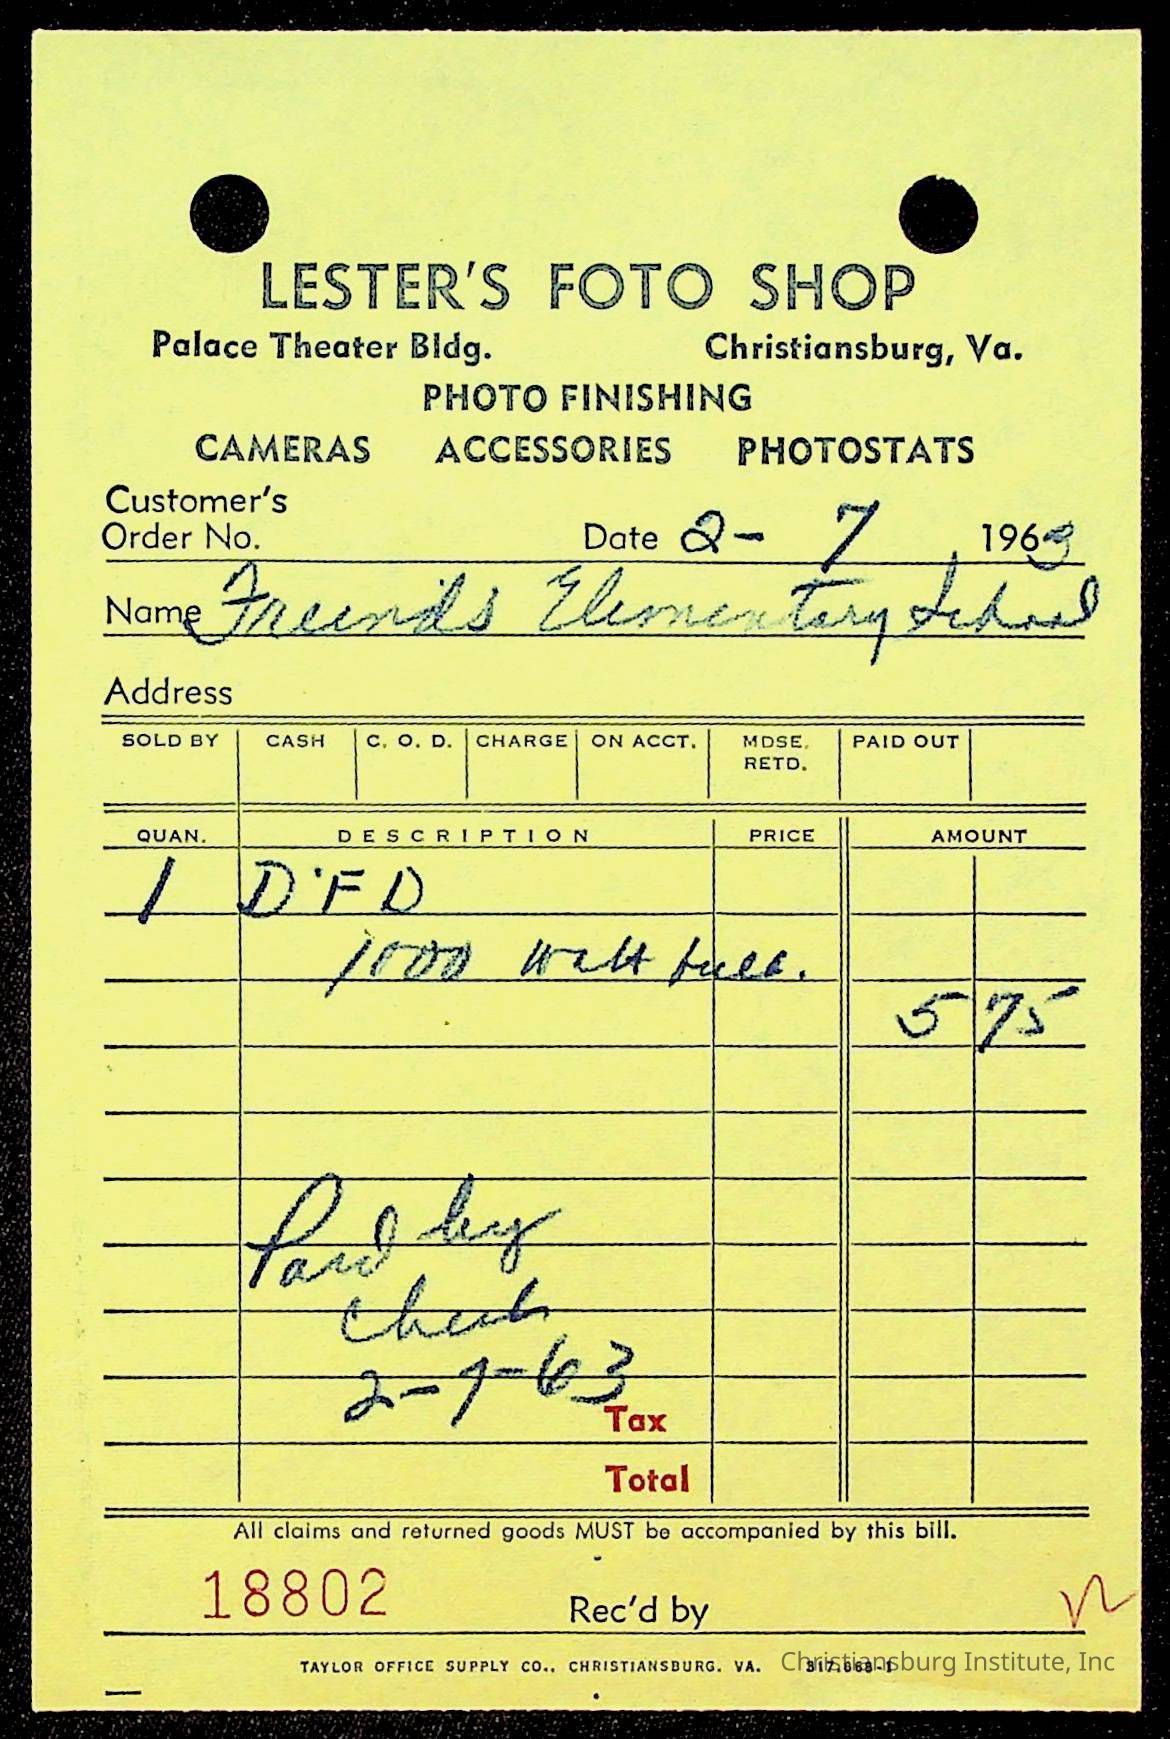 LESTER'S FOTO SHOP
Palace Theater Bldg. Christiansburg, Va.
PHOTO FINISHING
CAMERAS ACCESSORIES PHOTOSTATS
Customer's
Order No. Date 2- 7 1963
Name Freinds Elementary School
Address
SOLD BY CASH C. O. D. CHARGE ON ACCT. MDSE. RETD. PAID OUT
QUAN. DESCRIPTION PRICE AMOUNT
1 D.F D
1000 Watt bulb.
5 75
Paid by
check
2-7-63
Tax
Total
All claims and returned goods MUST be accompanied by this bill.
18802 Rec'd by
TAYLOR OFFICE SUPPLY CO., CHRISTIANSBURG, VA.
Christiansburg Institute, Inc